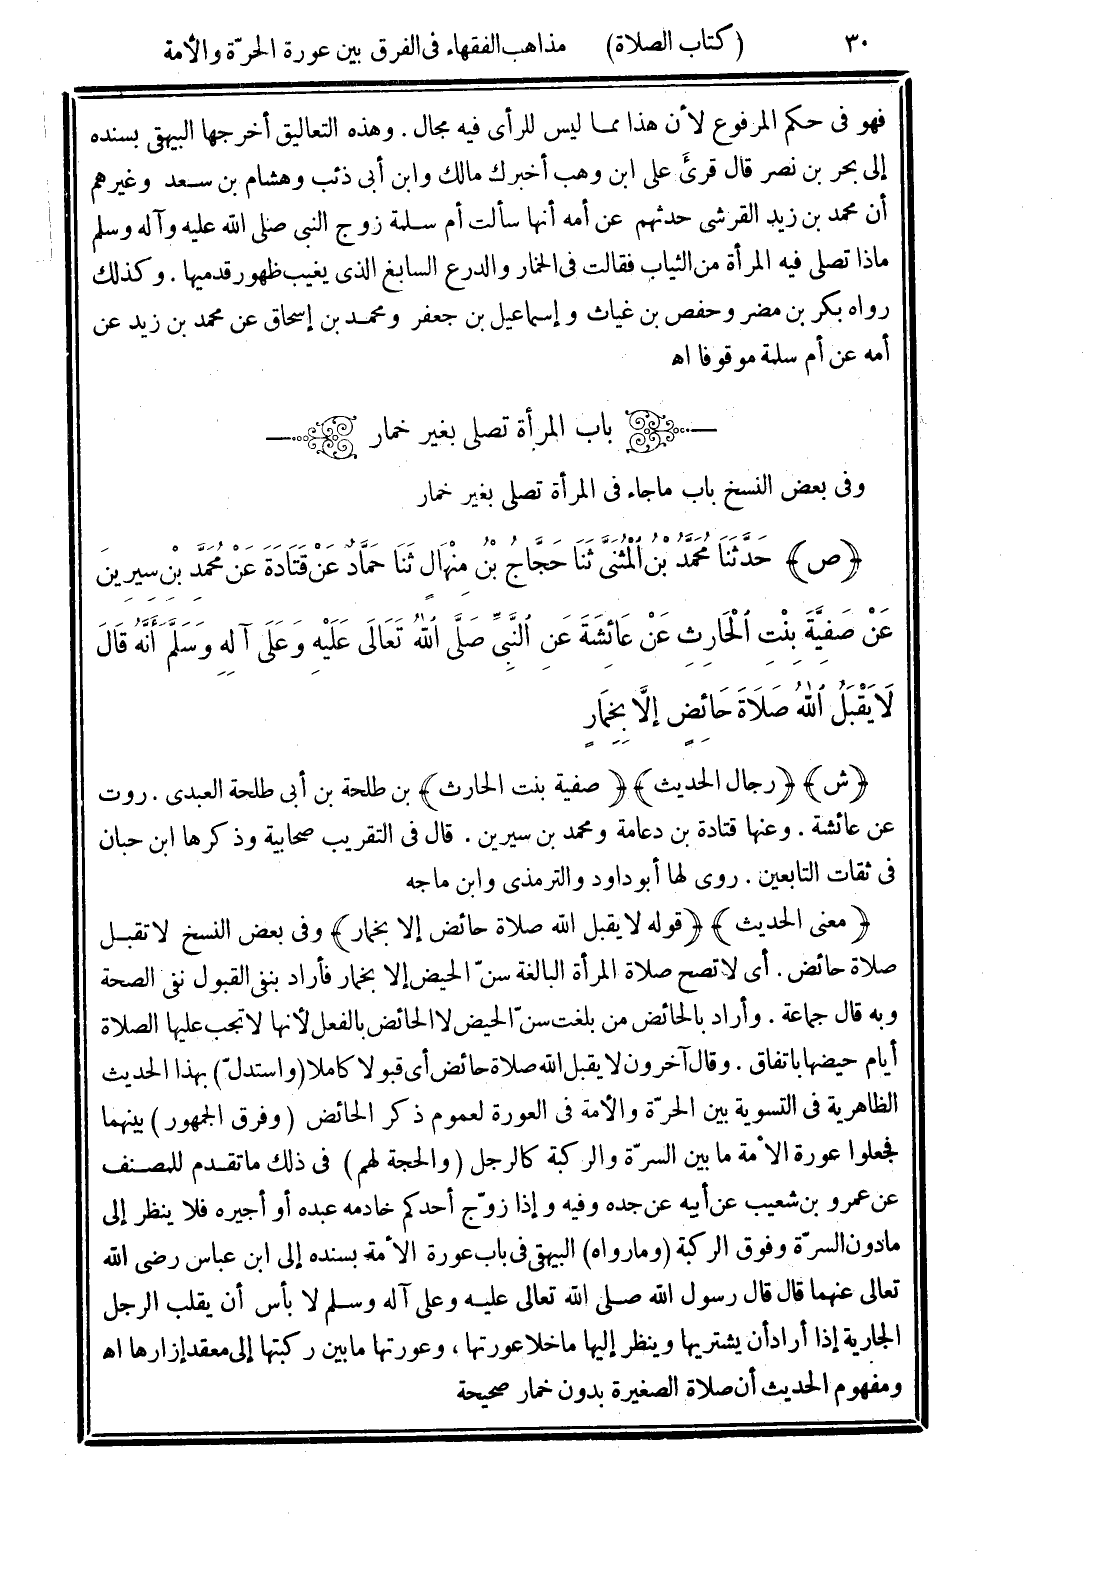 ٣٠ (كتاب الصلاة) مذاهب الفقهاء فى الفرق بين عورة الحرّة والأمة
فهو فى حكم المرفوع لأن هذا مما ليس للرأى فيه مجال . وهذه التعاليق أخرجها البيهقى بسنده
إلى بحر بن نصر قال قرئ على ابن وهب أخبرك مالك وابن أبى ذئب وهشام بن سعد وغيرهم
أن محمد بن زيد القرشى حدثهم عن أمه أنها سألت أم سلمة زوج النبى صلى الله عليه وآله وسلم
ماذا تصلى فيه المرأة من الثياب فقالت فى الخمار والدرع السابغ الذى يغيب ظهور قدميها . وكذلك
رواه بكر بن مضر وحفص بن غياث وإسماعيل بن جعفر ومحمد بن إسحاق عن محمد بن زيد عن
أمه عن أم سلمة موقوفا اه
باب المرأة تصلى بغير خمار
وفى بعض النسخ باب ماجاء فى المرأة تصلى بغير خمار
﴿ص﴾ حَدَّثَنَا مُحَمَّدُ بْنُ ٱلْمُثَنَّى ثَنَا حَجَّاجُ بْنُ مِنْهَالٍ ثَنَا حَمَّادٌ عَنْ قَتَادَةَ عَنْ مُحَمَّدِ بْنِ سِيرِينَ
عَنْ صَفِيَّةَ بِنْتِ ٱلْحَارِثِ عَنْ عَائِشَةَ عَنِ ٱلنَّبِيِّ صَلَّى ٱللهُ تَعَالَى عَلَيْهِ وَعَلَى آلِهِ وَسَلَّمَ أَنَّهُ قَالَ
لَا يَقْبَلُ ٱللهُ صَلَاةَ حَائِضٍ إِلَّا بِخِمَارٍ
﴿ش﴾ ﴿رجال الحديث﴾ ﴿صفية بنت الحارث﴾ بن طلحة بن أبى طلحة العبدى . روت
عن عائشة . وعنها قتادة بن دعامة ومحمد بن سيرين . قال فى التقريب صحابية وذكرها ابن حبان
فى ثقات التابعين . روى لها أبو داود والترمذى وابن ماجه
﴿معنى الحديث﴾ ﴿قوله لا يقبل الله صلاة حائض إلا بخمار﴾ وفى بعض النسخ لا تقبل
صلاة حائض . أى لا تصح صلاة المرأة البالغة سنّ الحيض إلا بخمار فأراد بنفى القبول نفى الصحة
وبه قال جماعة . وأراد بالحائض من بلغت سنّ الحيض لا الحائض بالفعل لأنها لا تجب عليها الصلاة
أيام حيضها باتفاق . وقال آخرون لا يقبل الله صلاة حائض أى قبولا كاملا (واستدلّ) بهذا الحديث
الظاهرية فى التسوية بين الحرّة والأمة فى العورة لعموم ذكر الحائض (وفرق الجمهور) بينهما
فجعلوا عورة الأمة ما بين السرّة والركبة كالرجل (والحجة لهم) فى ذلك ما تقدم للمصنف
عن عمرو بن شعيب عن أبيه عن جده وفيه وإذا زوّج أحدكم خادمه عبده أو أجيره فلا ينظر إلى
مادون السرّة وفوق الركبة (وما رواه) البيهقى فى باب عورة الأمة بسنده إلى ابن عباس رضى الله
تعالى عنهما قال قال رسول الله صلى الله تعالى عليه وعلى آله وسلم لا بأس أن يقلب الرجل
الجارية إذا أراد أن يشتريها وينظر إليها ما خلا عورتها ، وعورتها ما بين ركبتها إلى معقد إزارها اه
ومفهوم الحديث أن صلاة الصغيرة بدون خمار صحيحة